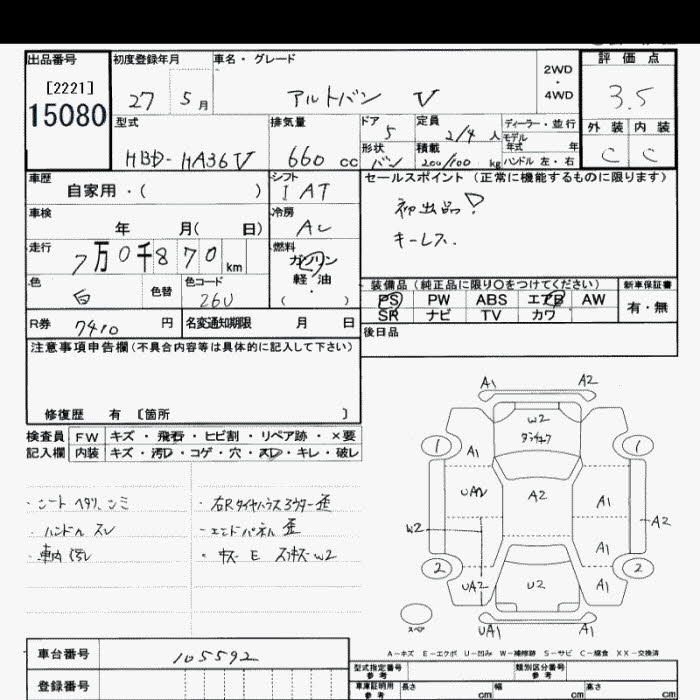 出品番号 初度登録年月 車名・グレード 評価点
[2221]
15080
27 5月 アルトバン V
2WD
・
4WD
3.5
型式 排気量 ドア 定員 ディーラー・並行 外装 内装
HBD-HA36V 660cc 5 2/4人 モデル年式 年
形状 積載
バン 200/100 kg ハンドル 左・右
C C
車歴 シフト セールスポイント(正常に機能するものに限ります)
自家用・( ) IAT
初出品!
車検 冷房
年 月( 日) AC
キーレス.
走行 燃料
7万0千870km ガソリン
軽・油
( )
色 色替 色コード
白 26U
装備品(純正品に限り○をつけてください) 新車保証書
PS PW ABS エアB AW 有・無
SR ナビ TV カワ
R券 7410円 名変通知期限 月 日
後日品
注意事項申告欄(不具合内容等は具体的に記入して下さい)
修復歴 有 〔箇所 〕
検査員 FW キズ・飛石・ヒビ割・リペア跡・×要
記入欄 内装 キズ・汚レ・コゲ・穴・スレ・キレ・破レ
・シート ヘタリ、シミ
・ハンドル スレ
・車内 汚レ
・右Rタイヤハウス アウター 歪
・エンドパネル 歪
・キズ E スリキズ W2
A1 A2
W2
1 1
A1
UA2 A2 A1
W2 A2
A1
2 2
UA2 U2 A1
スペア UA1 A1
A-キズ E-エクボ U-凹み W-補修跡 S-サビ C-腐食 XX-交換済
車台番号 105592
登録番号
型式指定番号 参考 類別区分番号 参考
車庫証明用 参考 長さ cm 幅 cm 高さ cm